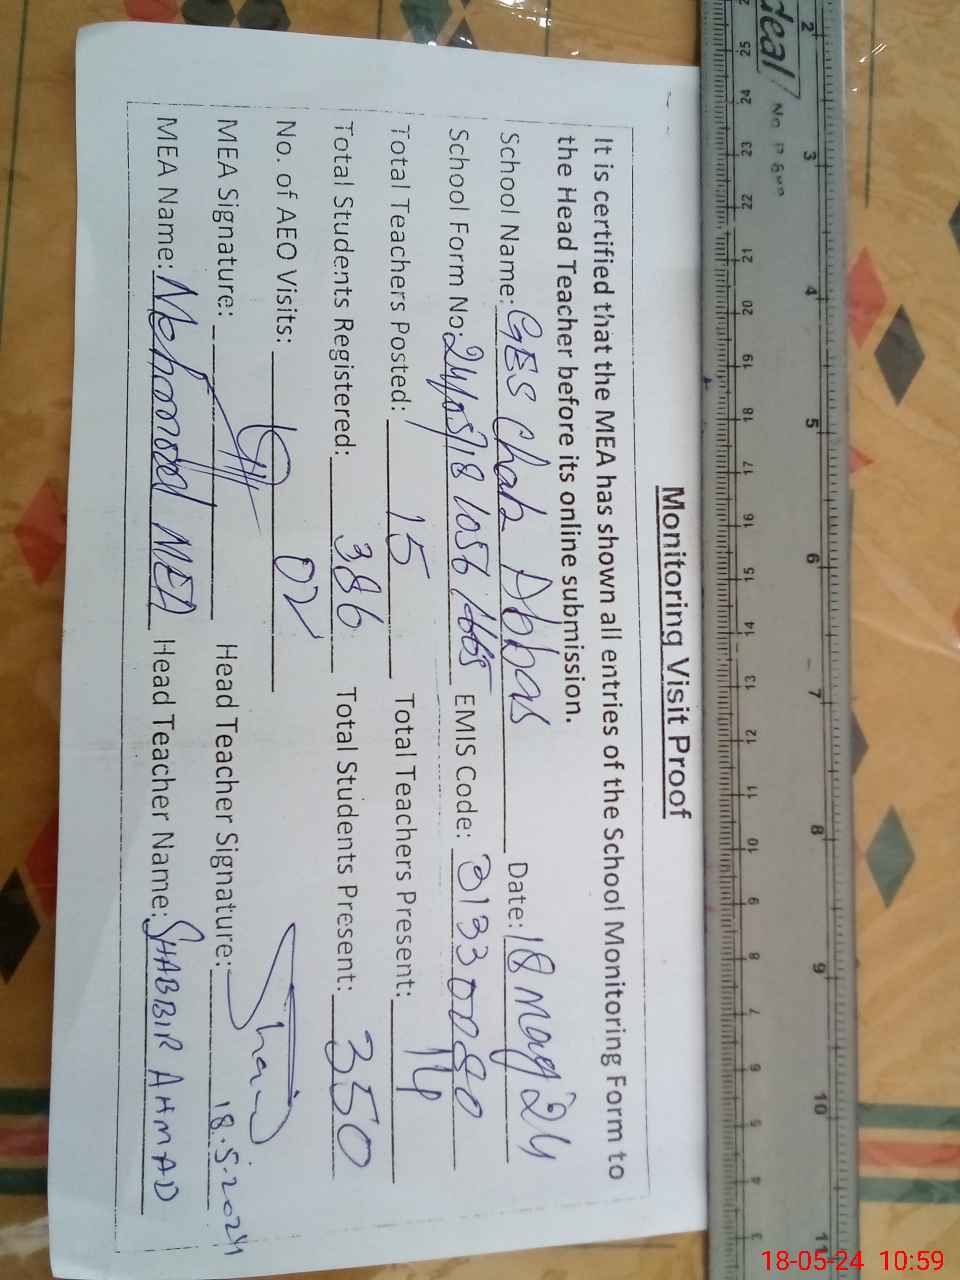 Monitoring Visit Proof
It is certified that the MEA has shown all entries of the School Monitoring Form to
the Head Teacher before its online submission.
School Name: GES Chak Abbas Date: 18 May 24
School Form No: EMIS Code: 31330080
Total Teachers Posted: 15 Total Teachers Present: 14
Total Students Registered: 386 Total Students Present: 350
No. of AEO Visits: 02
MEA Signature: Head Teacher Signature: 18.5.2024
MEA Name: MEA Head Teacher Name: SHABBIR AHMAD
deal
25 24 23 22 21 20 19 18 17 16 15 14 13 12 11 10 9 8 7 6 5 4 3
2 3 4 5 6 7 8 9 10 11
18-05-24 10:59